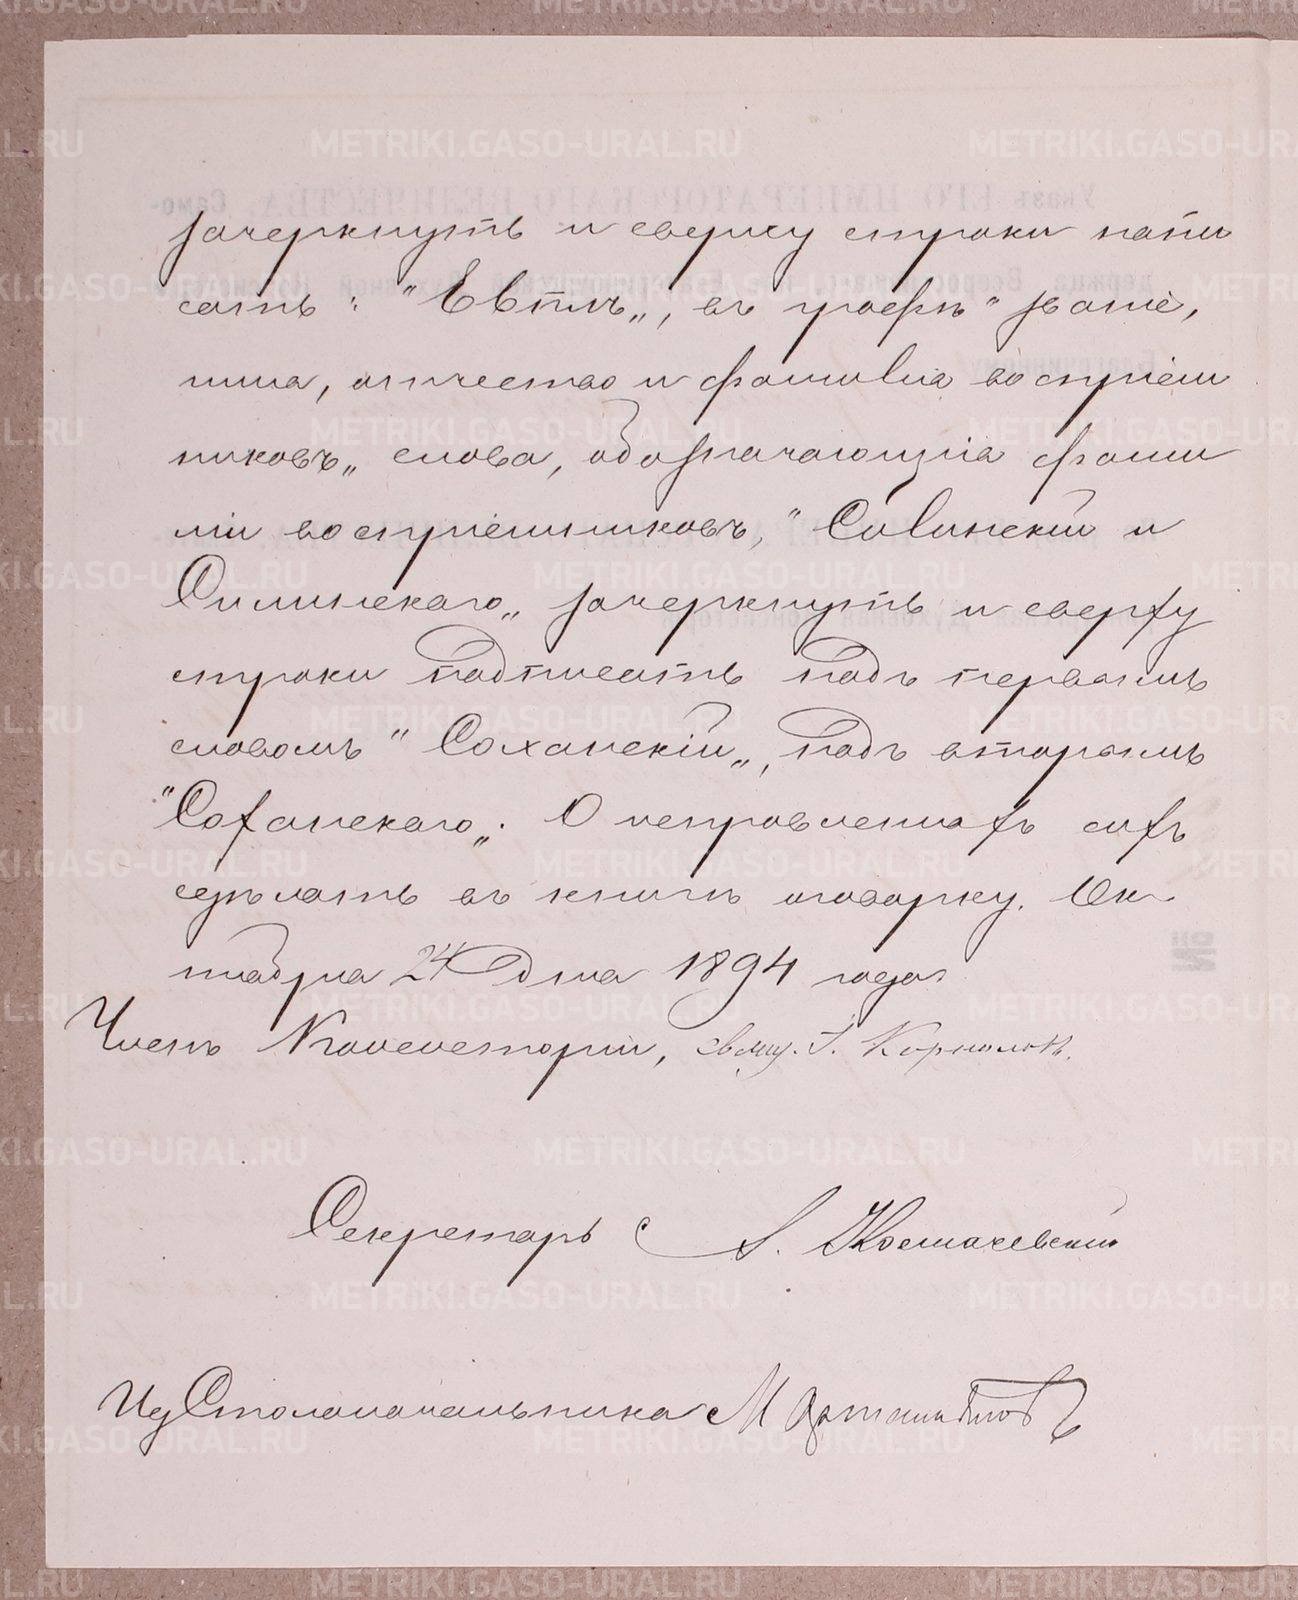 зачеркнуть и сверху строки напи
сать: "Евѳим„, въ графѣ "званіе,
имя, отчество и фамилія воспріем
никовъ„ слова, обозначающія фами
ліи воспріемниковъ, "Сивинскій и
Силинскаго„ зачеркнуть и сверху
строки подписать надъ первымъ
словомъ "Соханскій„, надъ вторымъ
"Соханскаго„. О исправленіяхъ сихъ
сдѣлать въ книгѣ оговорку. Ок
тября 24 дня 1894 года
Членъ Консисторіи, свящ. І.
Секретарь А. Космачевскій
И д Столоначальника М
METRIKI.GASO-URAL.RU